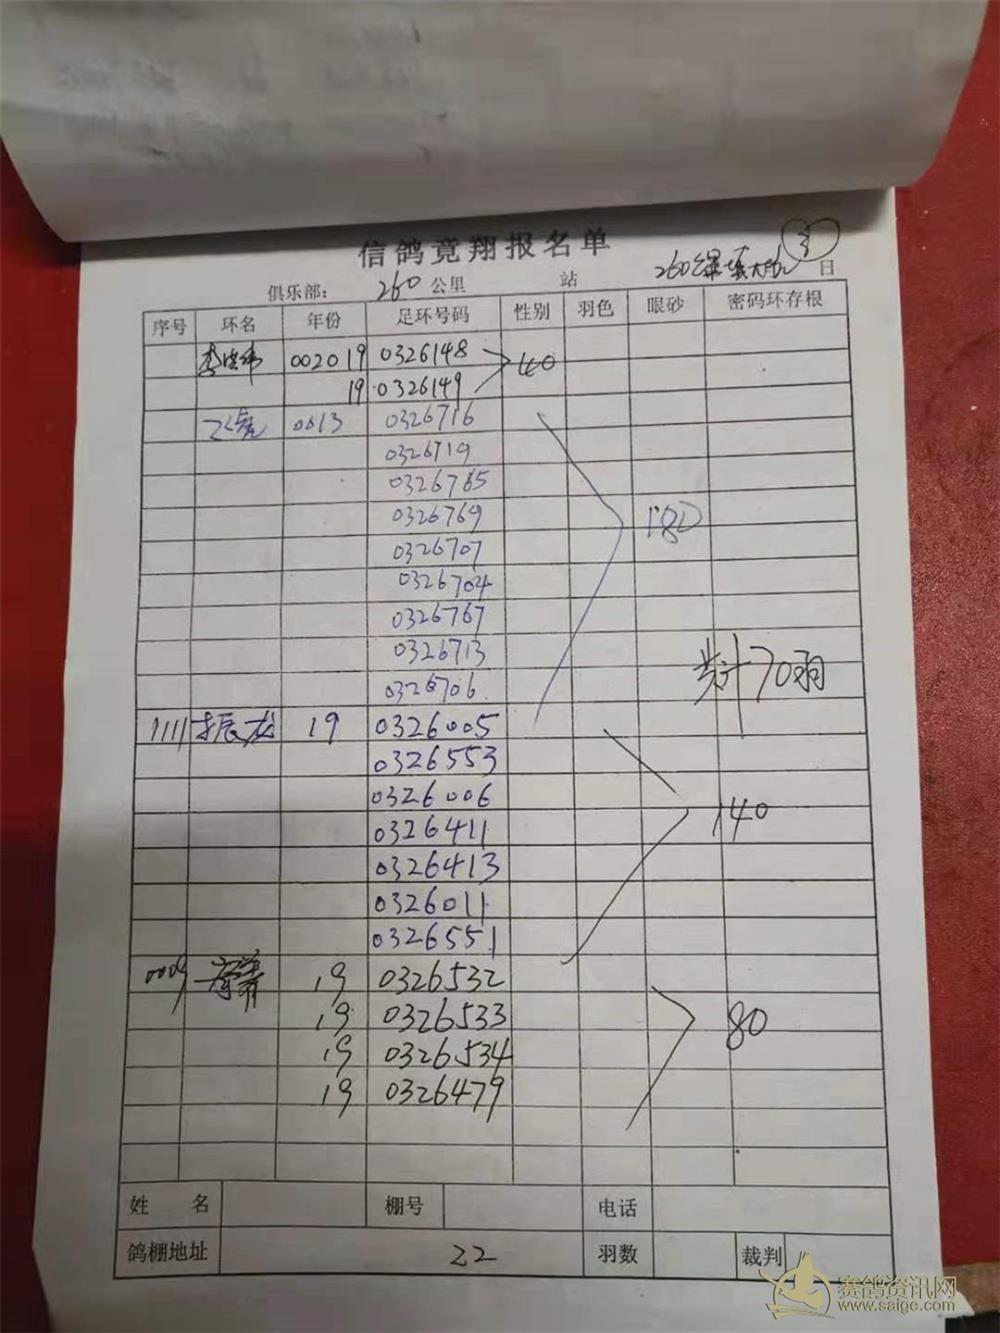 信鸽竞翔报名单
3
俱乐部： 260 公里 站 260 日
序号 环名 年份 足环号码 性别 羽色 眼砂 密码环存根
002019 0326148 40
19 0326149
0013 0326716
0326719
0326765
0326769 180
0326707
0326704
0326767
0326713 共计70羽
0326706
1111 振龙 19 0326005
0326553
0326006 140
0326411
0326413
0326011
0326551
0009 19 0326532
19 0326533 80
19 0326534
19 0326479
姓 名 棚号 电话
鸽棚地址 22 羽数 裁判
赛鸽资讯网
www.saige.com